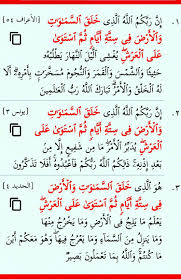 ١. إِنَّ رَبَّكُمُ اللَّهُ الَّذِى خَلَقَ السَّمَٰوَٰتِ [الأعراف ٥٤]
وَالْأَرْضَ فِى سِتَّةِ أَيَّامٍ ثُمَّ اسْتَوَىٰ
عَلَى الْعَرْشِ يُغْشِى الَّيْلَ النَّهَارَ يَطْلُبُهُۥ
حَثِيثًا وَالشَّمْسَ وَالْقَمَرَ وَالنُّجُومَ مُسَخَّرَٰتٍۭ بِأَمْرِهِۦٓ ۗ أَلَا
لَهُ الْخَلْقُ وَالْأَمْرُ ۗ تَبَارَكَ اللَّهُ رَبُّ الْعَٰلَمِينَ
٢. إِنَّ رَبَّكُمُ اللَّهُ الَّذِى خَلَقَ السَّمَٰوَٰتِ [يونس ٣]
وَالْأَرْضَ فِى سِتَّةِ أَيَّامٍ ثُمَّ اسْتَوَىٰ
عَلَى الْعَرْشِ ۖ يُدَبِّرُ الْأَمْرَ ۖ مَا مِن شَفِيعٍ إِلَّا مِنۢ
بَعْدِ إِذْنِهِۦ ۚ ذَٰلِكُمُ اللَّهُ رَبُّكُمْ فَاعْبُدُوهُ ۚ أَفَلَا تَذَكَّرُونَ
٣. هُوَ الَّذِى خَلَقَ السَّمَٰوَٰتِ وَالْأَرْضَ [الحديد ٤]
فِى سِتَّةِ أَيَّامٍ ثُمَّ اسْتَوَىٰ عَلَى الْعَرْشِ ۚ
يَعْلَمُ مَا يَلِجُ فِى الْأَرْضِ وَمَا يَخْرُجُ مِنْهَا
وَمَا يَنزِلُ مِنَ السَّمَآءِ وَمَا يَعْرُجُ فِيهَا ۖ وَهُوَ مَعَكُمْ أَيْنَ
مَا كُنتُمْ ۚ وَاللَّهُ بِمَا تَعْمَلُونَ بَصِيرٌ